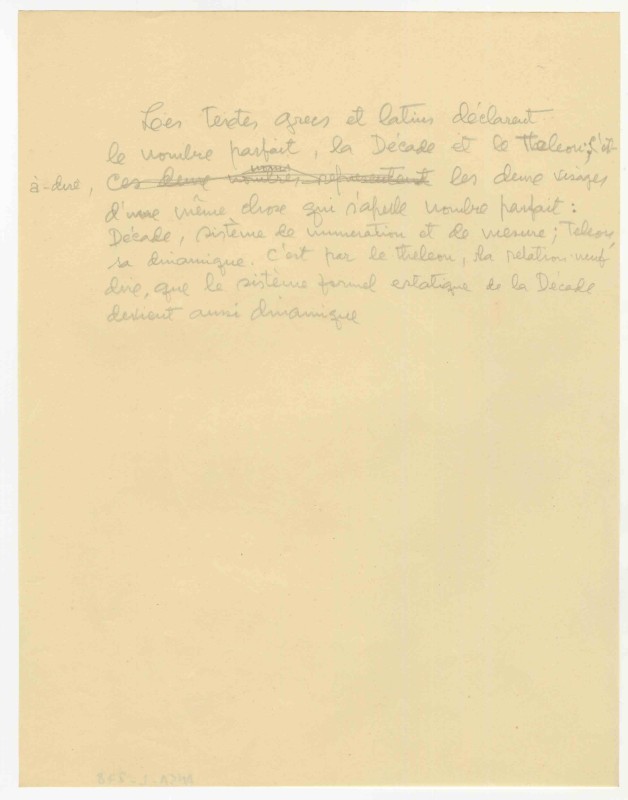 Les textes grecs et latins déclarent
le nombre parfait, la Décade et le Theleon; c'est-
à-dire, Ces deux nombres representent les deux visages
d'une même chose qui s'apelle nombre parfait :
Décade, sistème de numeration et de mesure; Teleon,
sa dinamique. C'est par le theleon, la relation neuf
dire, que le sistème formel estatique de la Décade
devient aussi dinamique